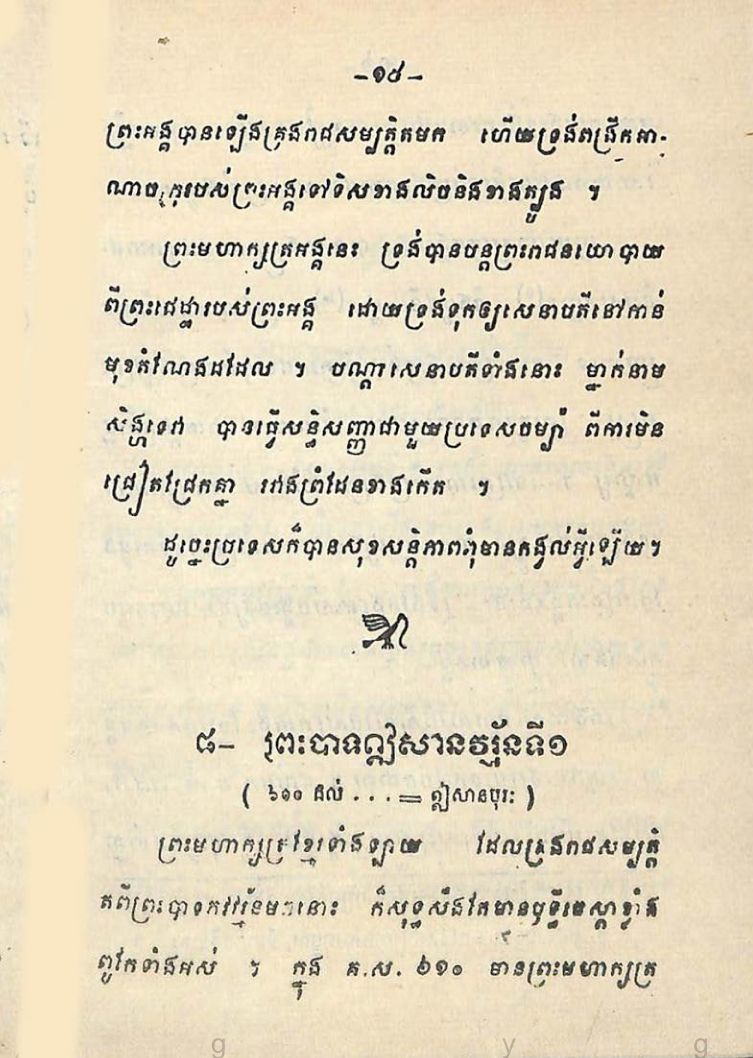 –១៨–
ព្រះអង្គបានឡើងគ្រងរាជសម្បត្តិតមក ហើយទ្រង់ពង្រីកអា-
ណាចក្ររបស់ព្រះអង្គទៅទិសខាងលិចនិងខាងត្បូង ។
ព្រះមហាក្សត្រអង្គនេះ ទ្រង់បានបន្តព្រះរាជនយោបាយ
ពីព្រះជេដ្ឋារបស់ព្រះអង្គ ដោយទ្រង់ទុកឲ្យសេនាបតីនៅកាន់
មុខតំណែងដដែល ។ បណ្តាសេនាបតីទាំងនោះ ម្នាក់នាម
សិង្ហទេវ បានធ្វើសន្ធិសញ្ញាជាមួយប្រទេសចម្ប៉ា ពីការមិន
ជ្រៀតជ្រែកគ្នា រវាងព្រំដែនខាងកើត ។
ដូច្នេះប្រទេសក៏បានសុខសន្តិភាពពុំមានកង្វល់អ្វីឡើយ។
៨– ព្រះបាទឦសានវរ្ម័នទី១
( ៦១០ ដល់ . . . = ឦសានបុរៈ )
ព្រះមហាក្សត្រខ្មែរទាំងឡាយ ដែលគ្រងរាជសម្បត្តិ
តពីព្រះបាទភវវរ្ម័នមកនោះ ក៏សុទ្ធសឹងតែមានឫទ្ធីតេស្តាខ្លាំង
ពូកែទាំងអស់ ។ ក្នុង គ.ស. ៦១០ មានព្រះមហាក្សត្រ
g y g